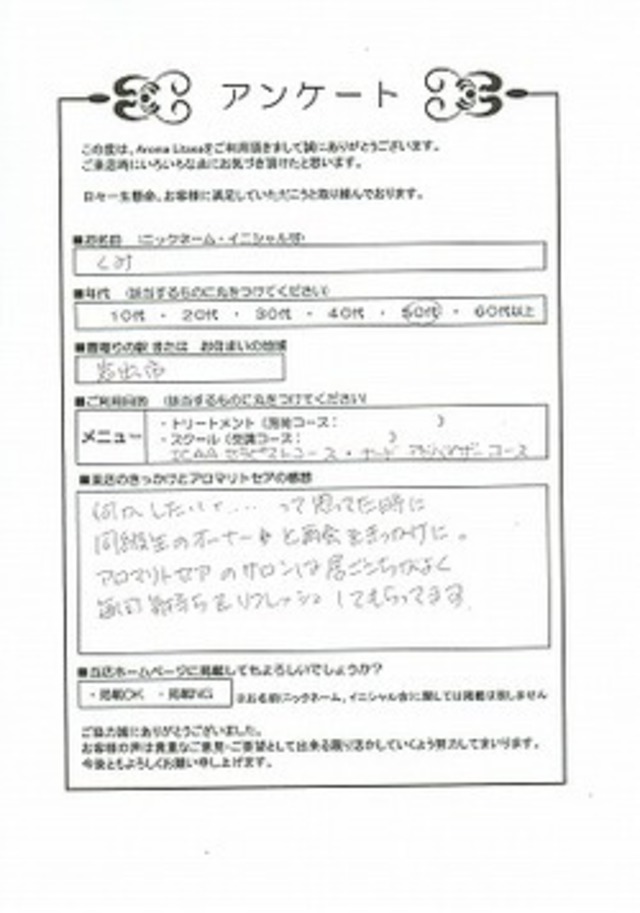 アンケート
この度は、Aroma Litseaをご利用頂きまして誠にありがとうございます。
ご来店時にいろいろな点にお気づき頂けたと思います。
日々一生懸命、お客様に満足していただこうと取り組んでおります。
■お名前 (ニックネーム・イニシャル可)
くみ
■年代 (該当するものに丸をつけてください)
10代 ・ 20代 ・ 30代 ・ 40代 ・ 50代 ・ 60代以上
■最寄りの駅 または お住まいの地域
岩出市
■ご利用目的 (該当するものに丸をつけてください)
メニュー
・トリートメント (施術コース: )
・スクール (受講コース: )
セラピストコース・ナード アドバイザーコース
■来店のきっかけとアロマリトセアの感想
何かしたいな... って思ってた時に
同級生のオーナーと再会をきっかけに。
アロマリトセアのサロンは居ごこちがよく
毎回気持ちもリフレッシュしてもらってます
■当店ホームページに掲載してもよろしいでしょうか?
・掲載OK ・掲載NG
※お名前(ニックネーム、イニシャル含)に関しては掲載は致しません
ご協力誠にありがとうございました。
お客様の声は貴重なご意見・ご要望として出来る限り活かしていくよう努力してまいります。
今後ともよろしくお願い申し上げます。